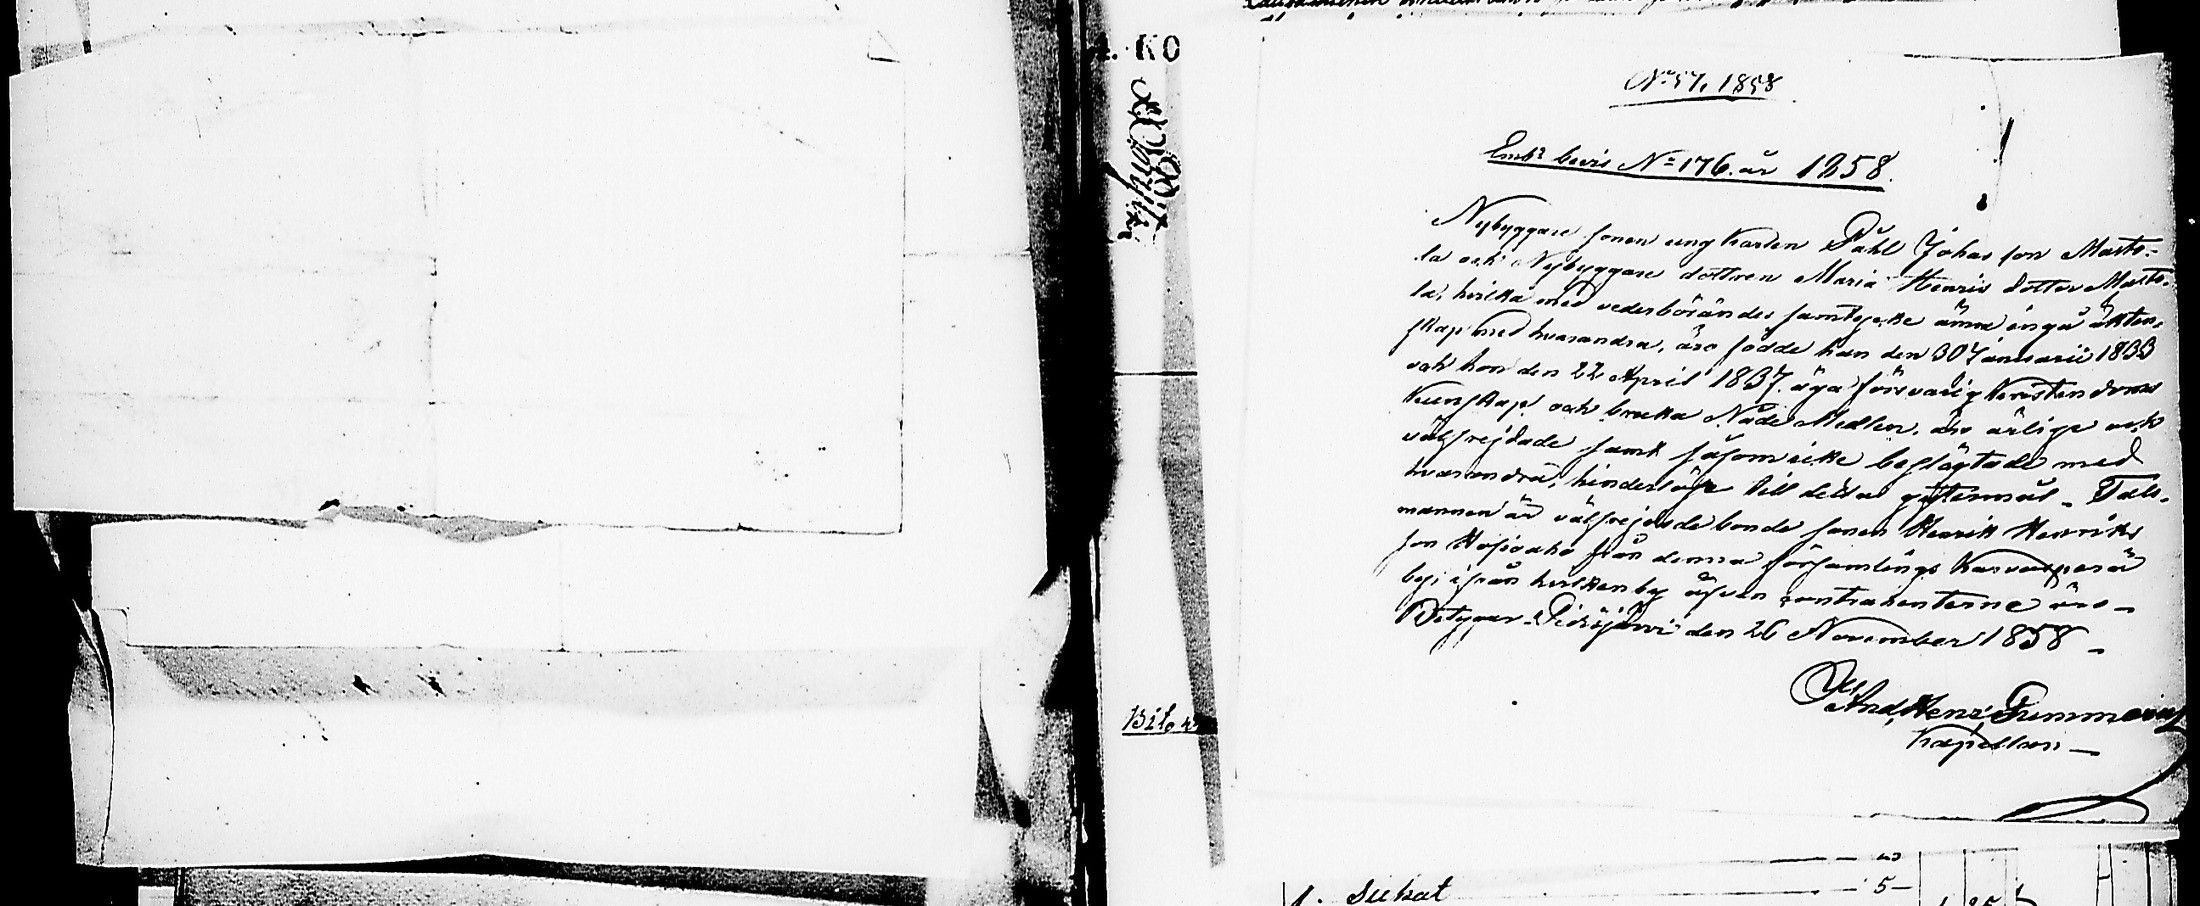 4. KO
No 57. 1858
Embs bevis No 176. år 1858.
Nybyggare sonen ung karlen Påhl Johas son Marts-
la och Nybyggare dottren Maria Henris dotter Marts-
la, hvilka med vederbörandes samtycke ämna ingå äkten-
skap med hvarandra, äro födde han den 30 Januarii 1833
och hon den 22 April 1837. äga försvarlig Kristendoms
Kunskap och bruka Nåde Medlen, äro ärlige och
välfrejdade samt såsom icke beslägtade med
hvarandra, hinderslöse till detta giftermål - Tals-
mannen är välfrejdade bonde sonen Henrik Henriks
son från denna församlings Karvasperä
by, ifrån hvilken by äfven contrahenterne äro -
Betygar. Pidisjärvi den 26 November 1858 -
And. Henr.
Kapellan -
Sukat
5 -